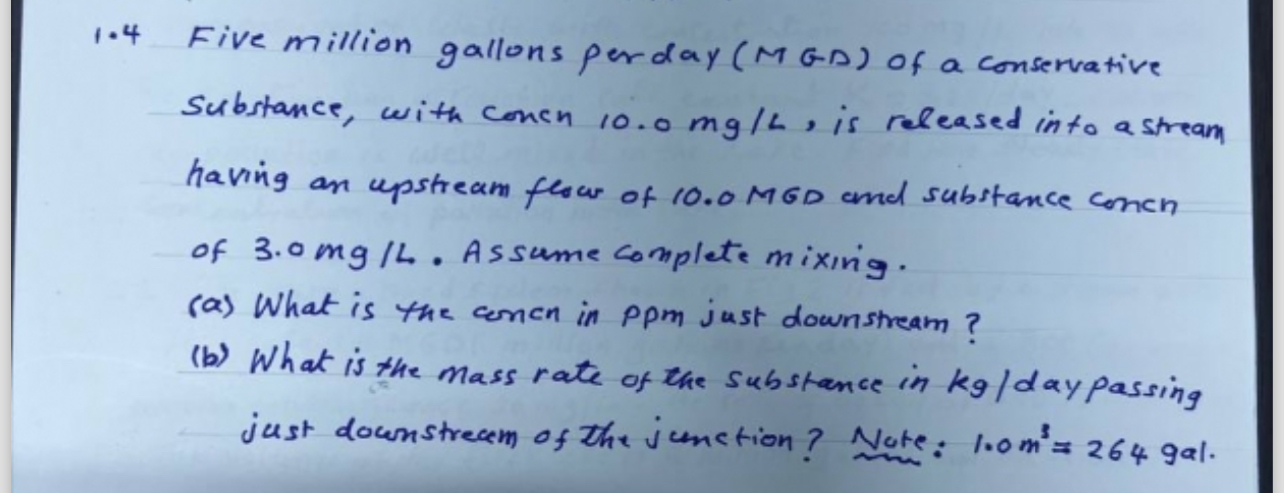 1.4 Five million gallons per day (MGD) of a conservative
substance, with concn 10.0 mg/L, is released into a stream
having an upstream flow of 10.0 MGD and substance concn
of 3.0 mg/L. Assume complete mixing.
(a) What is the concn in ppm just downstream?
(b) What is the mass rate of the substance in kg/day passing
just downstream of the junction? Note: 1.0 m³ = 264 gal.